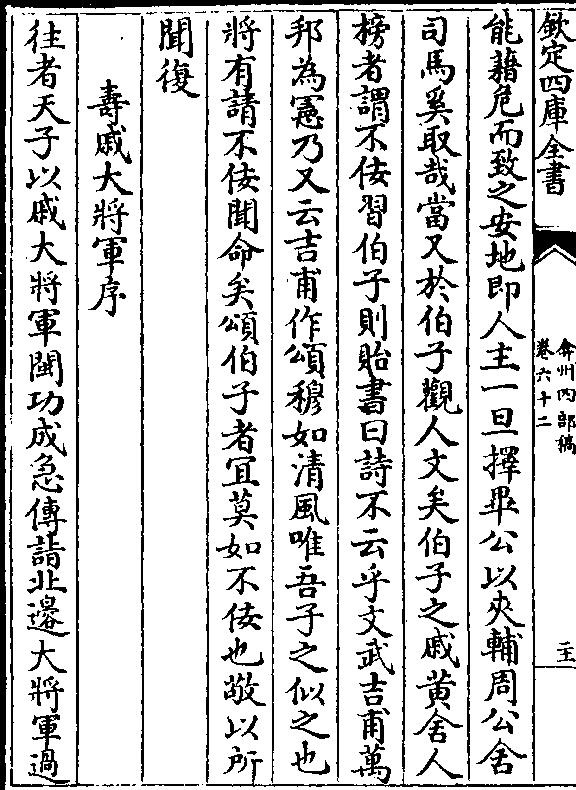 欽定四庫全書
弇州四部稿
卷六十二
二十
能藉危而致之安地即人主一旦擇畢公以夾輔周公舍
司馬奚取哉當又於伯子觀人文矣伯子之戚黄舍人
榜者謂不佞習伯子則貽書曰詩不云乎文武吉甫萬
邦為憲乃又云吉甫作頌穆如清風唯吾子之似之也
將有請不佞聞命矣頌伯子者宜莫如不佞也敬以所
聞復
壽戚大將軍序
往者天子以戚大將軍閩功成急傳詣北邊大將軍過